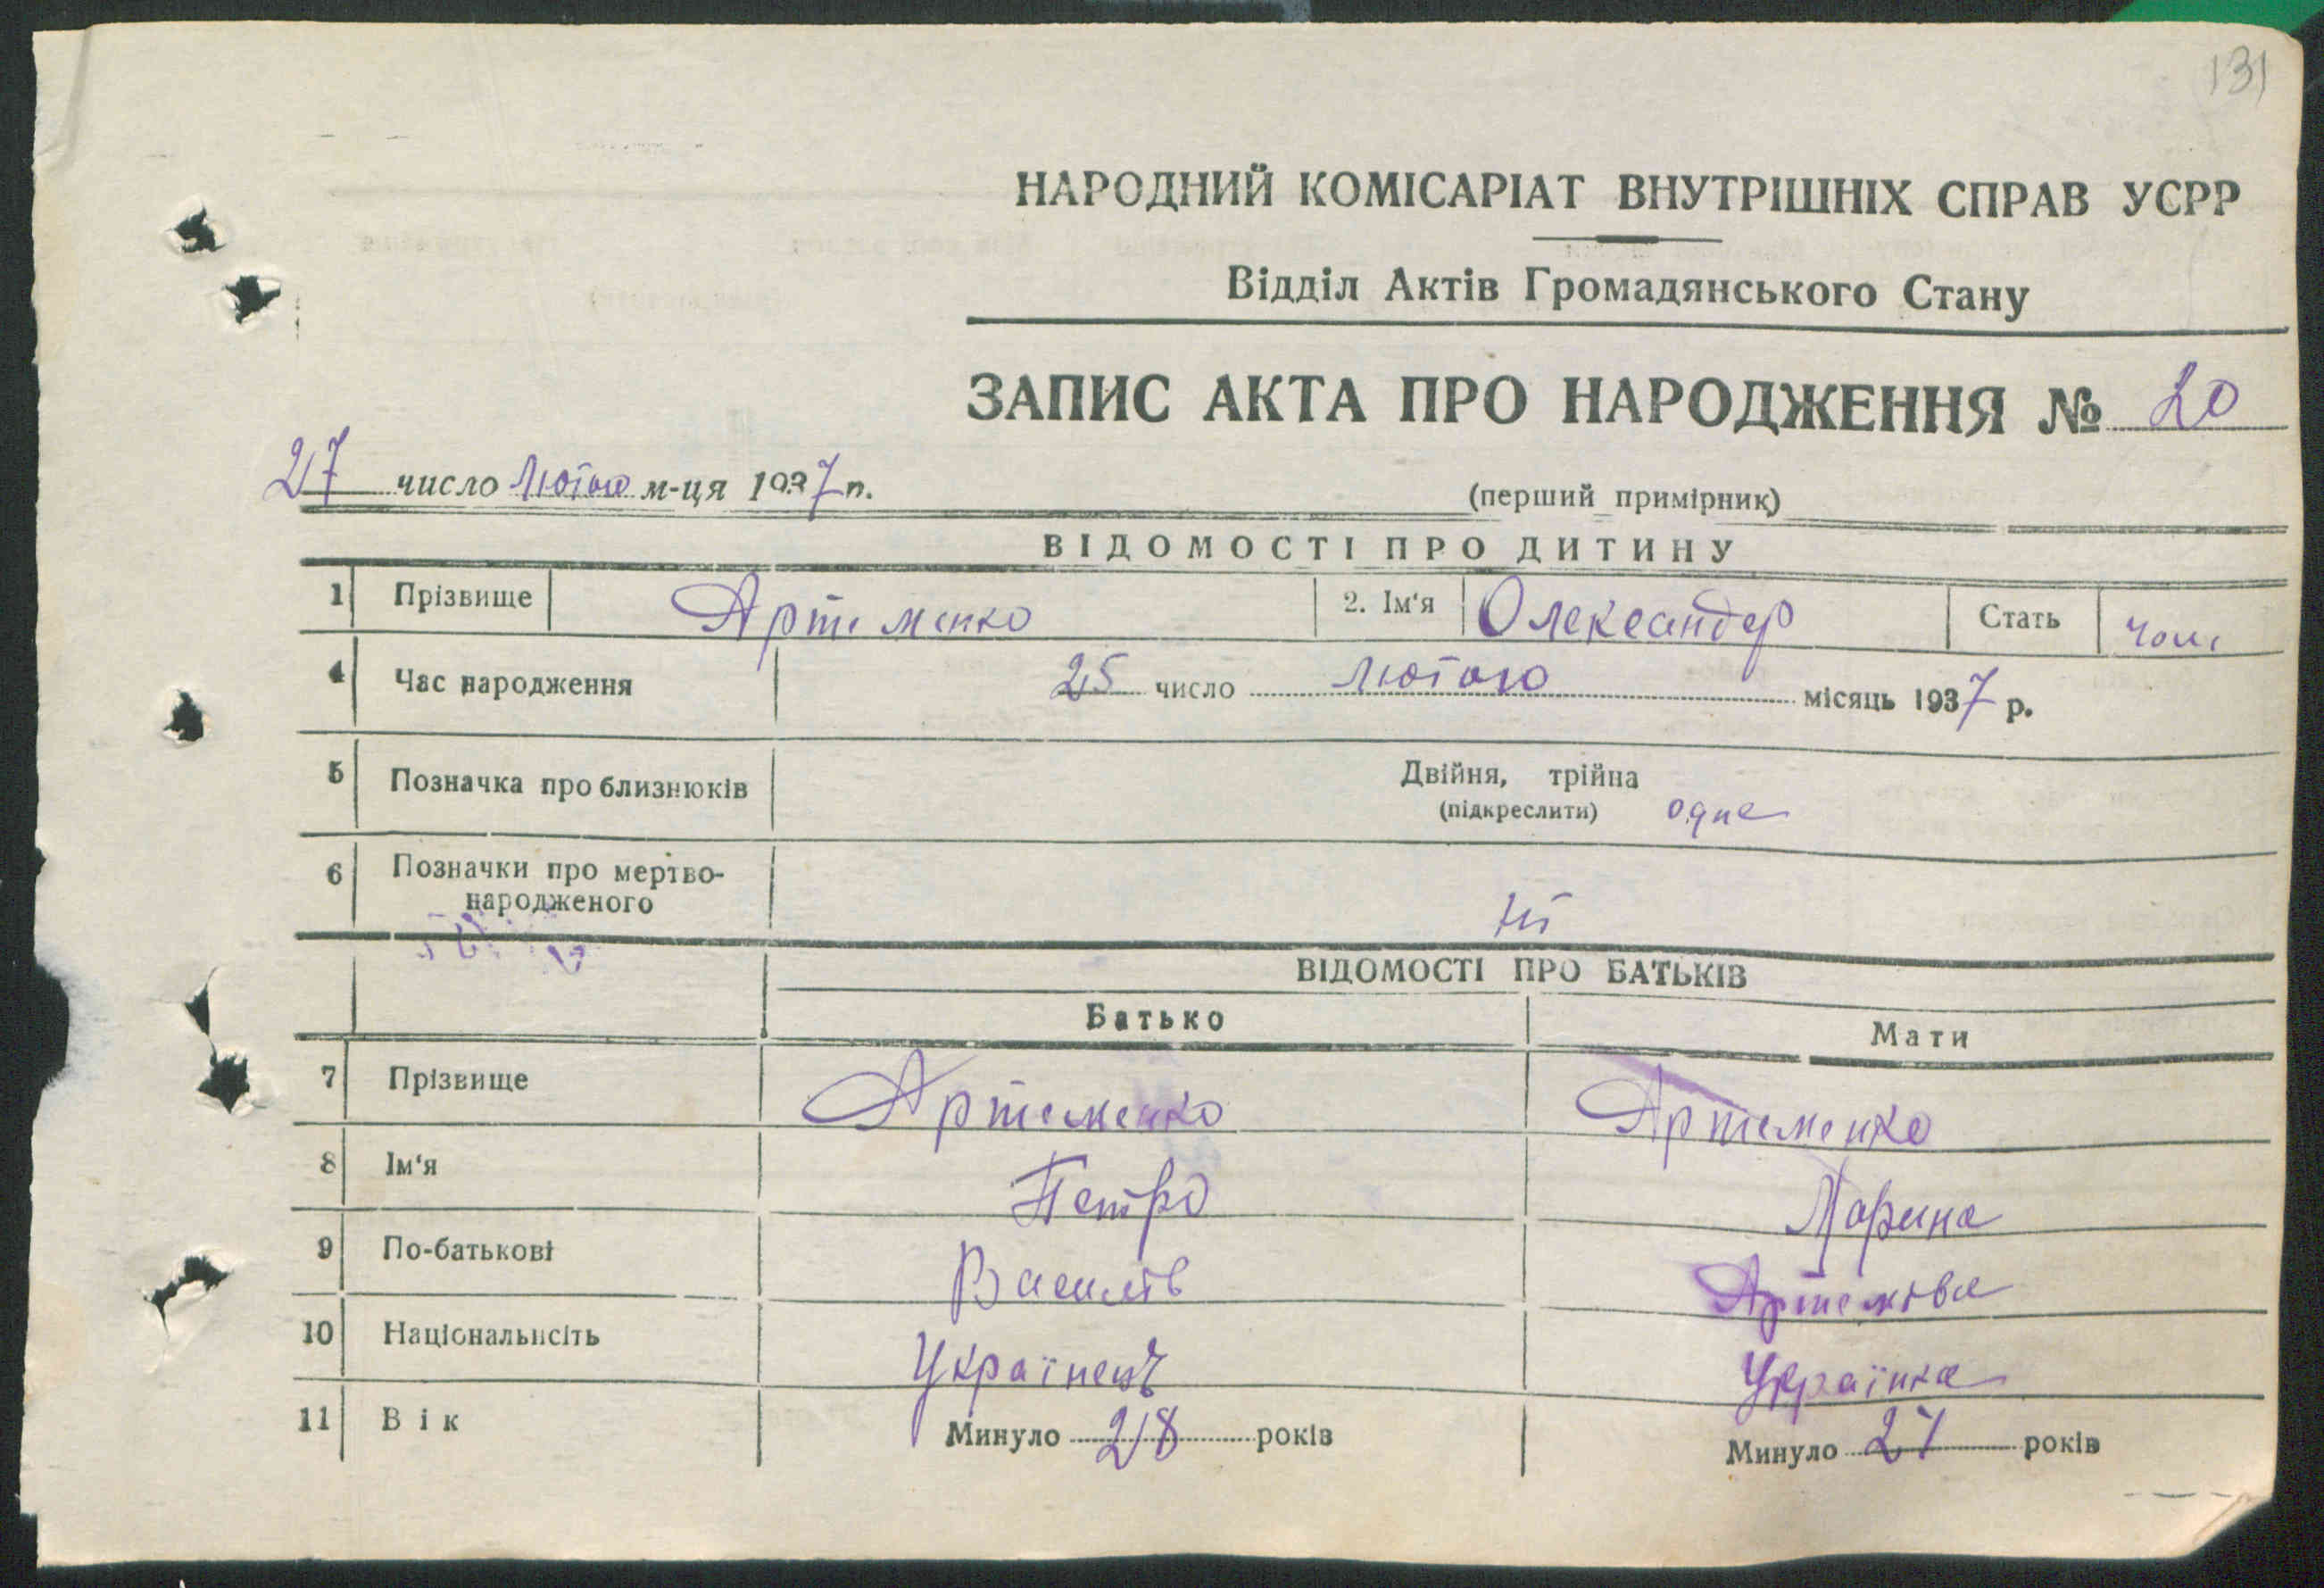 131
НАРОДНИЙ КОМІСАРІАТ ВНУТРІШНІХ СПРАВ УСРР
Відділ Актів Громадянського Стану
ЗАПИС АКТА ПРО НАРОДЖЕННЯ № 20
27 число Лютого м-ця 1937 р.
(перший примірник)
ВІДОМОСТІ ПРО ДИТИНУ
1 Прізвище Артеменко 2. Ім'я Олександер Стать чол
4 Час народження 25 число Лютого місяць 1937 р.
5 Позначка про близнюків Двійня, трійна
(підкреслити) одне
6 Позначки про мертво-
народженого ні
ВІДОМОСТІ ПРО БАТЬКІВ
Батько Мати
7 Прізвище Артеменко Артеменко
8 Ім'я Петро Марина
9 По-батькові Василів Артемівна
10 Національнсіть Українець Українка
11 Вік Минуло 28 років Минуло 27 років